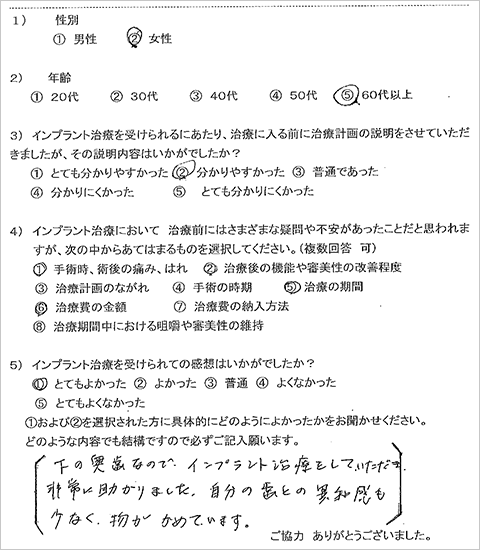 1） 性別
① 男性 ② 女性
2） 年齢
① 20代 ② 30代 ③ 40代 ④ 50代 ⑤ 60代以上
3） インプラント治療を受けられるにあたり、治療に入る前に治療計画の説明をさせていただ
きましたが、その説明内容はいかがでしたか？
① とても分かりやすかった ② 分かりやすかった ③ 普通であった
④ 分かりにくかった ⑤ とても分かりにくかった
4） インプラント治療において 治療前にはさまざまな疑問や不安があったことだと思われま
すが、次の中からあてはまるものを選択してください。（複数回答 可）
① 手術時、術後の痛み、はれ ② 治療後の機能や審美性の改善程度
③ 治療計画のながれ ④ 手術の時期 ⑤ 治療の期間
⑥ 治療費の金額 ⑦ 治療費の納入方法
⑧ 治療期間中における咀嚼や審美性の維持
5） インプラント治療を受けられての感想はいかがでしたか？
① とてもよかった ② よかった ③ 普通 ④ よくなかった
⑤ とてもよくなかった
①および②を選択された方に具体的にどのようによかったかをお聞かせください。
どのような内容でも結構ですので必ずご記入願います。
下の奥歯なので、インプラント治療をしていただき
非常に助かりました。自分の歯との異和感も
少なく、物が かめています。
ご協力 ありがとうございました。